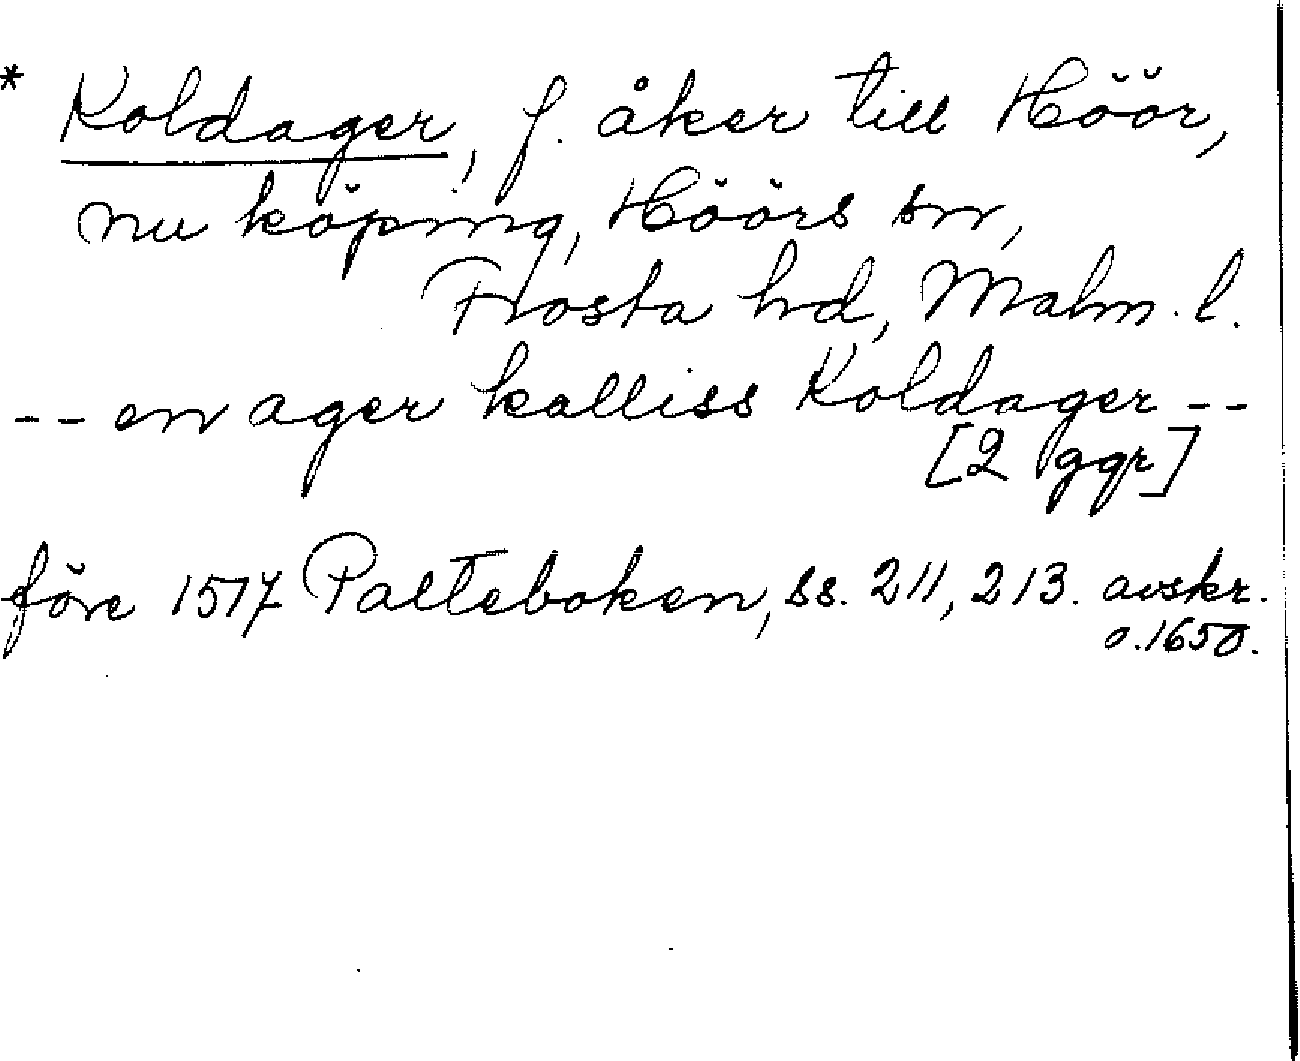 * Koldager, f. åker till Höör,
nu köping, Höörs sn,
Frosta hd, Malm. l.
-- en ager kalliss Koldager --
[2 ggr]
före 1517 Palteboken, ss. 211, 213. avskr.
o. 1650.